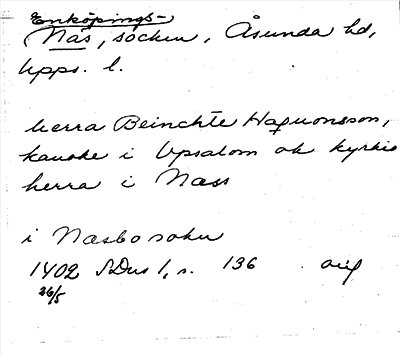 Enköpings-
Näs, socken, Åsunda hd,
Upps. l.
herra Beinchte Haquonsson,
kanoke i Upsalom ok kyrkio
herra i Nass
i Nasbo sokn
1402 SDns 1, s. 136 orig
26/5